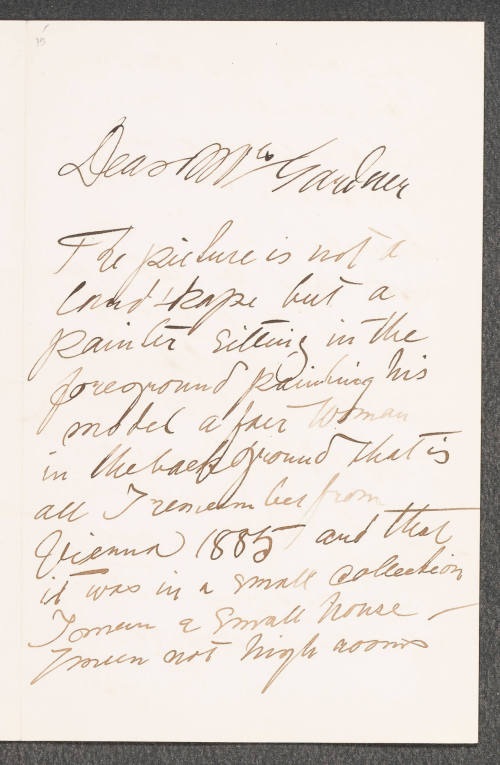 Dear Mrs Gardner
The picture is not a
landskape but a
painter sitting in the
foreground painting his
model a fair woman
in the background that is
all I remember from
Vienna 1885 and that
it was in a small collection
I mean a small house —
I mean not high rooms